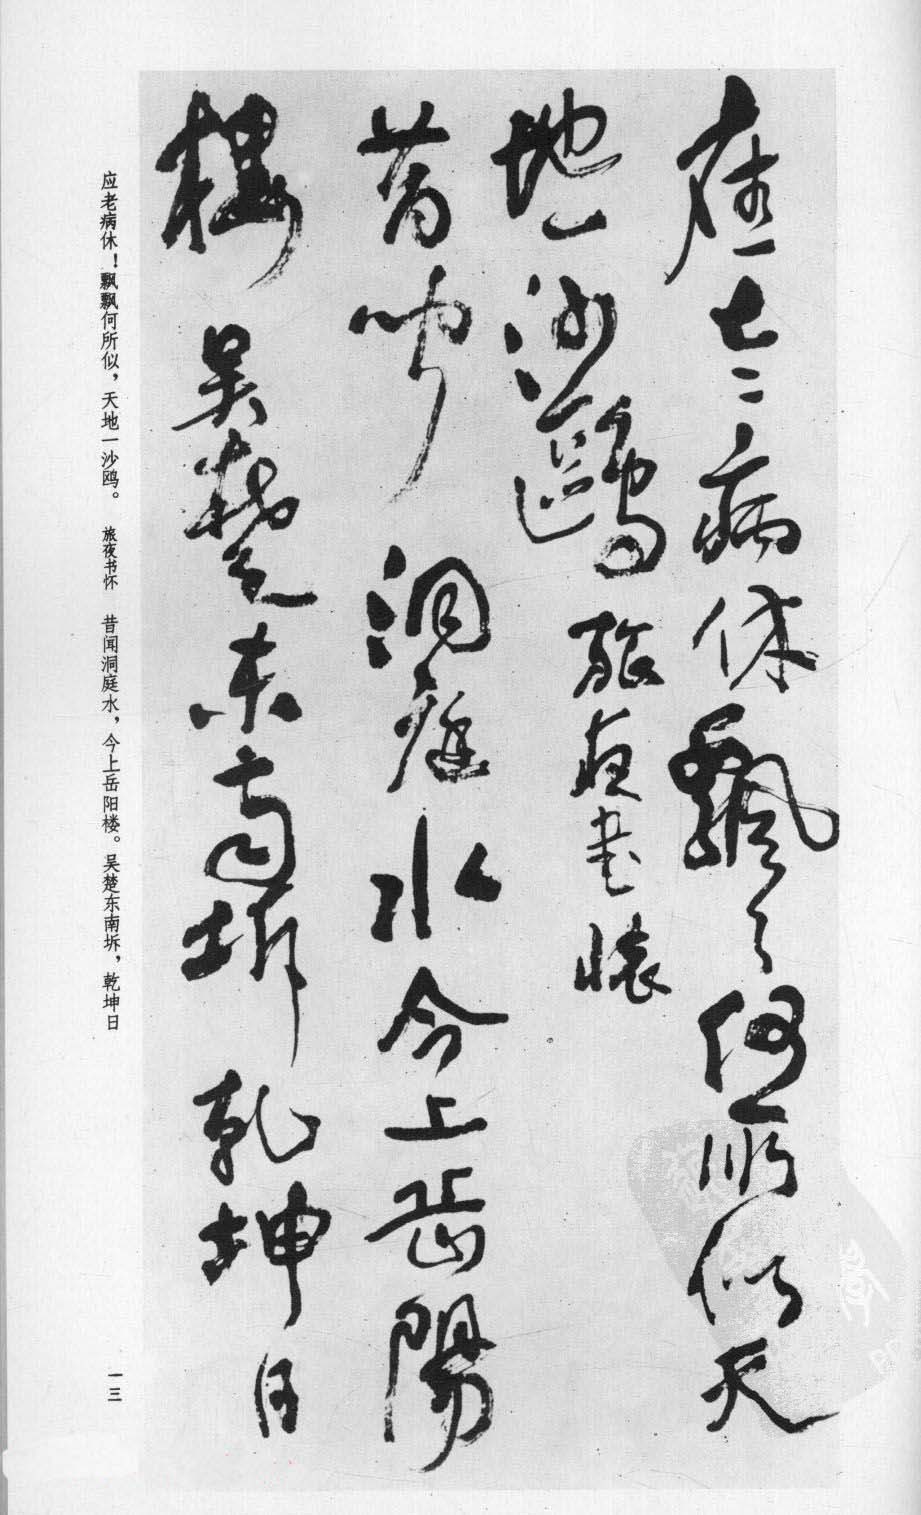 應老病休飄飄何所似天
地一沙鷗旅夜書懷
昔聞洞庭水今上岳陽
樓吳楚東南坼乾坤日
应老病休！飘飘何所似，天地一沙鸥。 旅夜书怀 昔闻洞庭水，今上岳阳楼。吴楚东南坼，乾坤日
一三